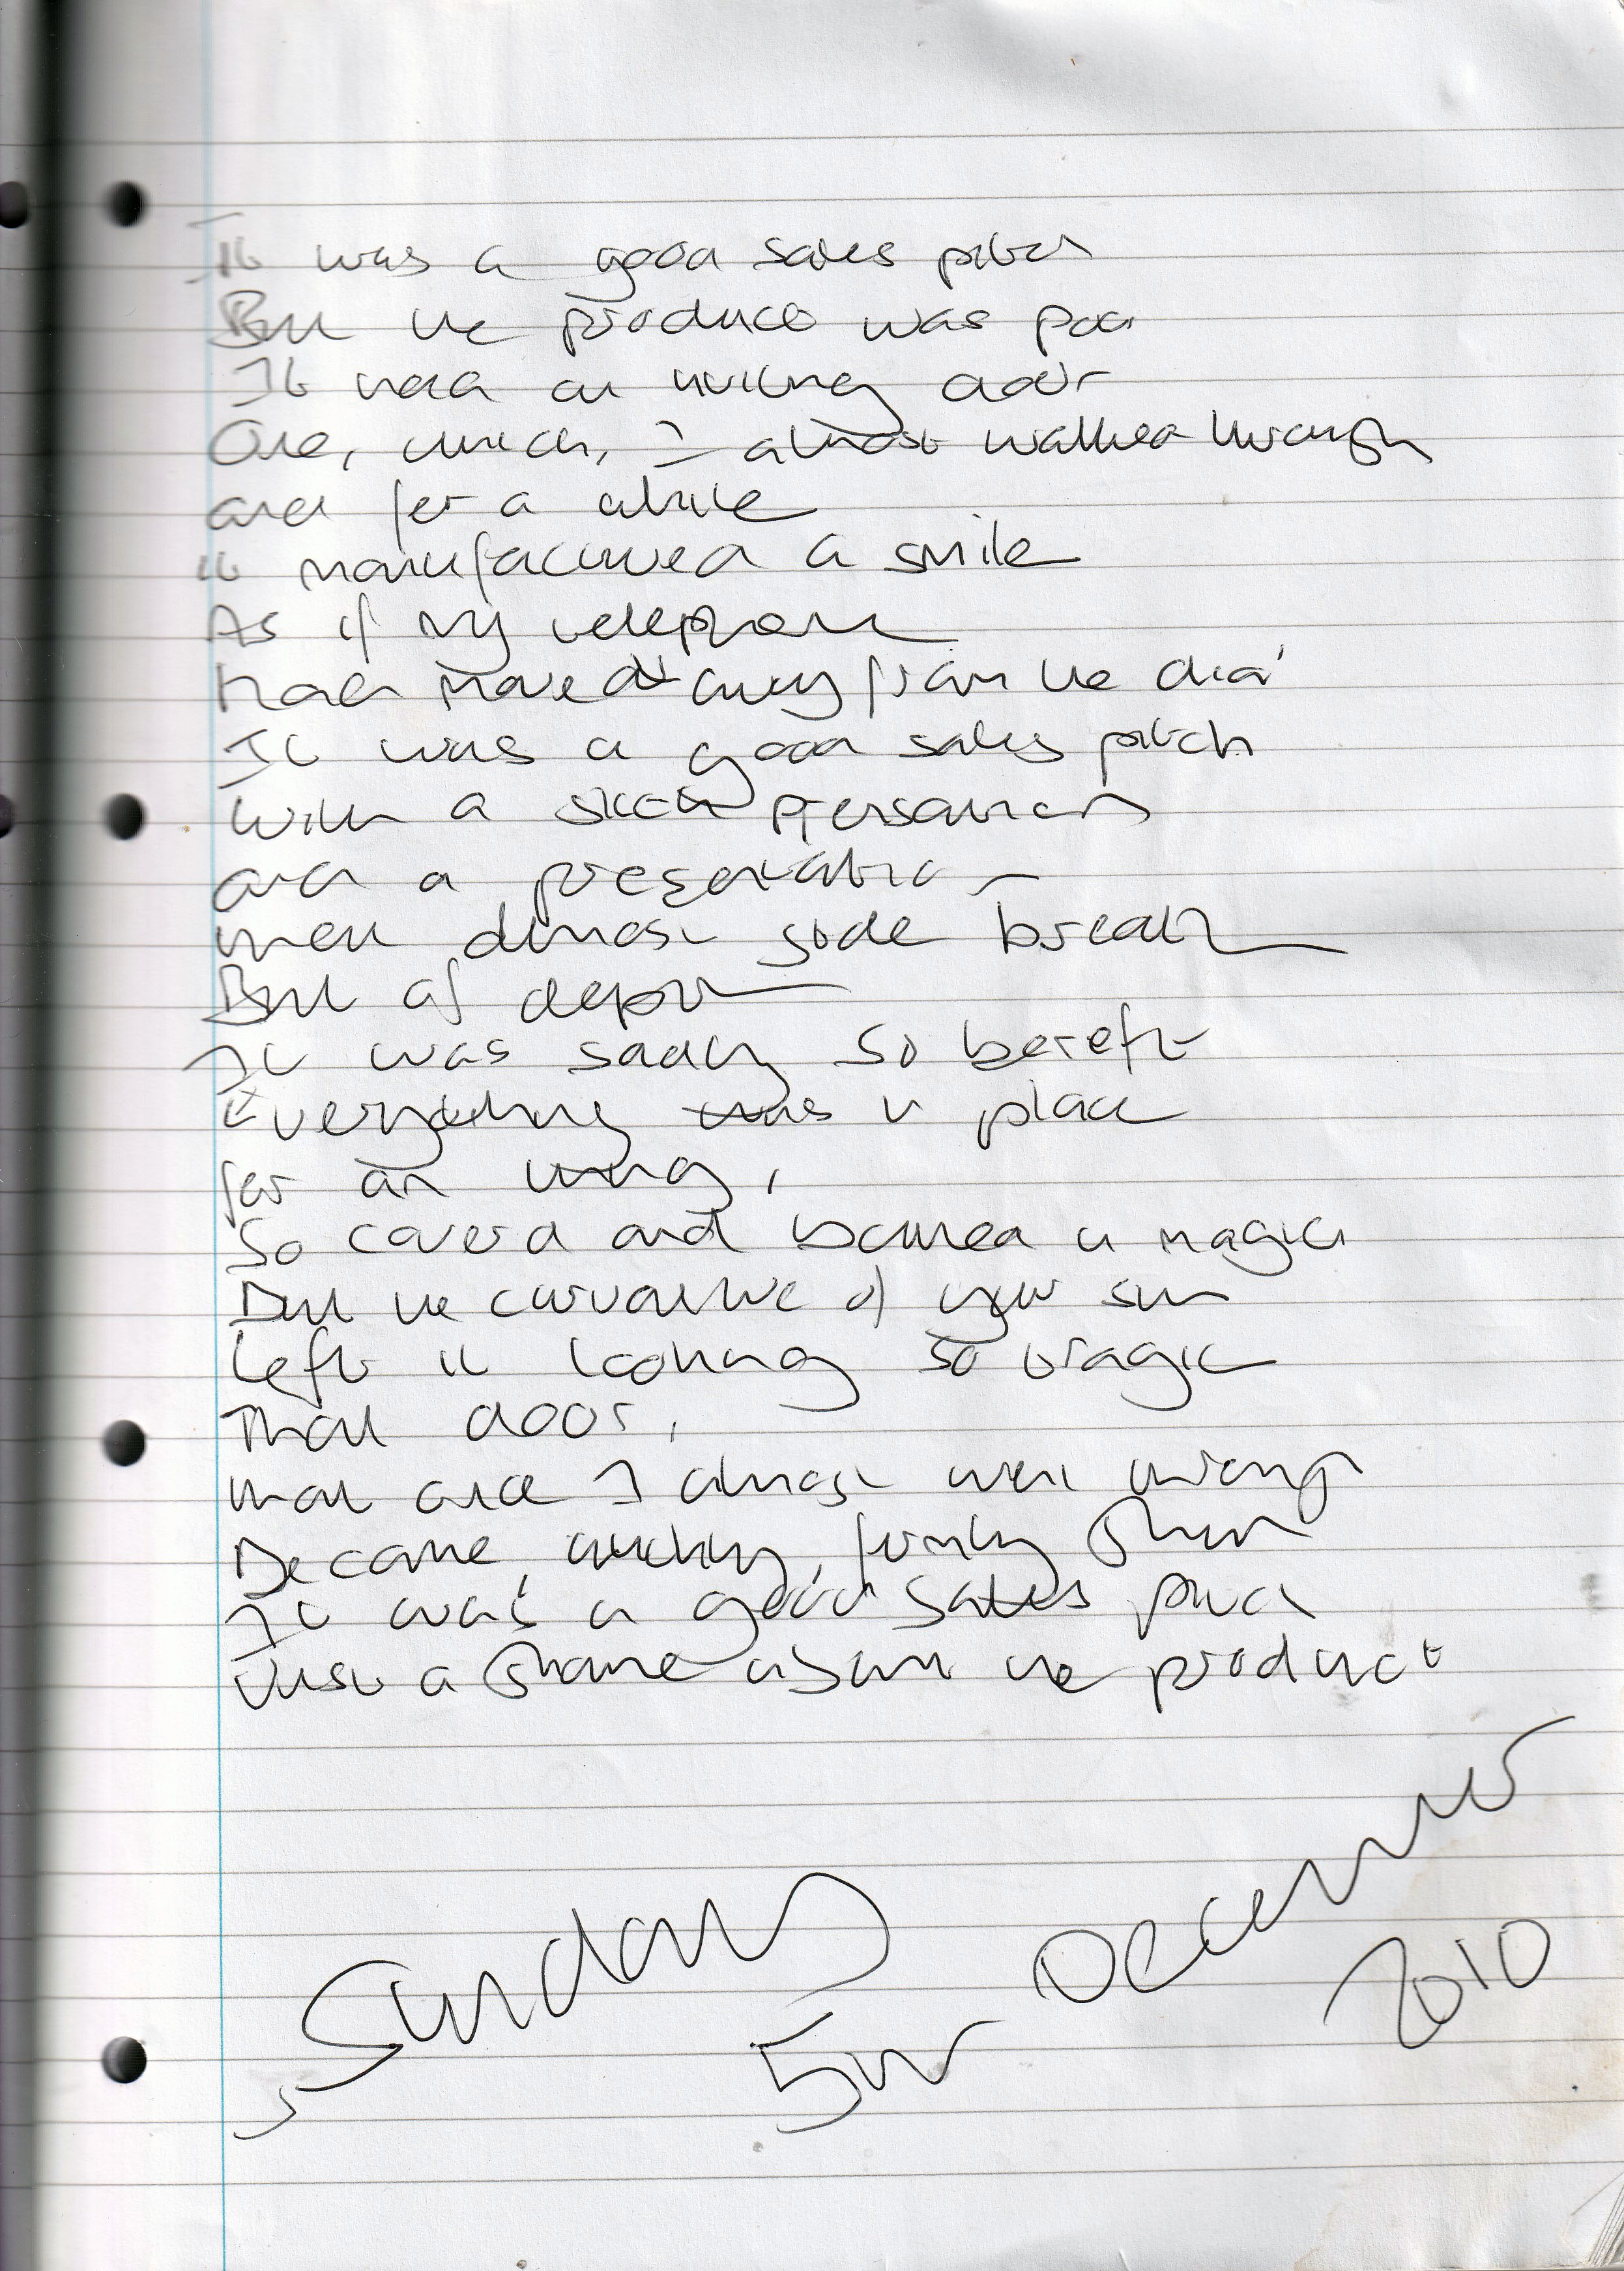 It was a good sales pitch
But the product was poor
It had an inviting door
One, which, I almost walked through
and for a while
it manufactured a smile
As if my telephone
had moved away from the dial
It was a good sales pitch
With a slick
and a presentation
that almost stole breath
But of depth
It was sadly so bereft
Everything was in place
for an
So covered and bathed in magic
But the of your sun
left it looking so tragic
That door,
that one I almost went through
Became, quickly, firmly shut
It was a good sales pitch
Just a shame about the product
Sunday
5th December
2010